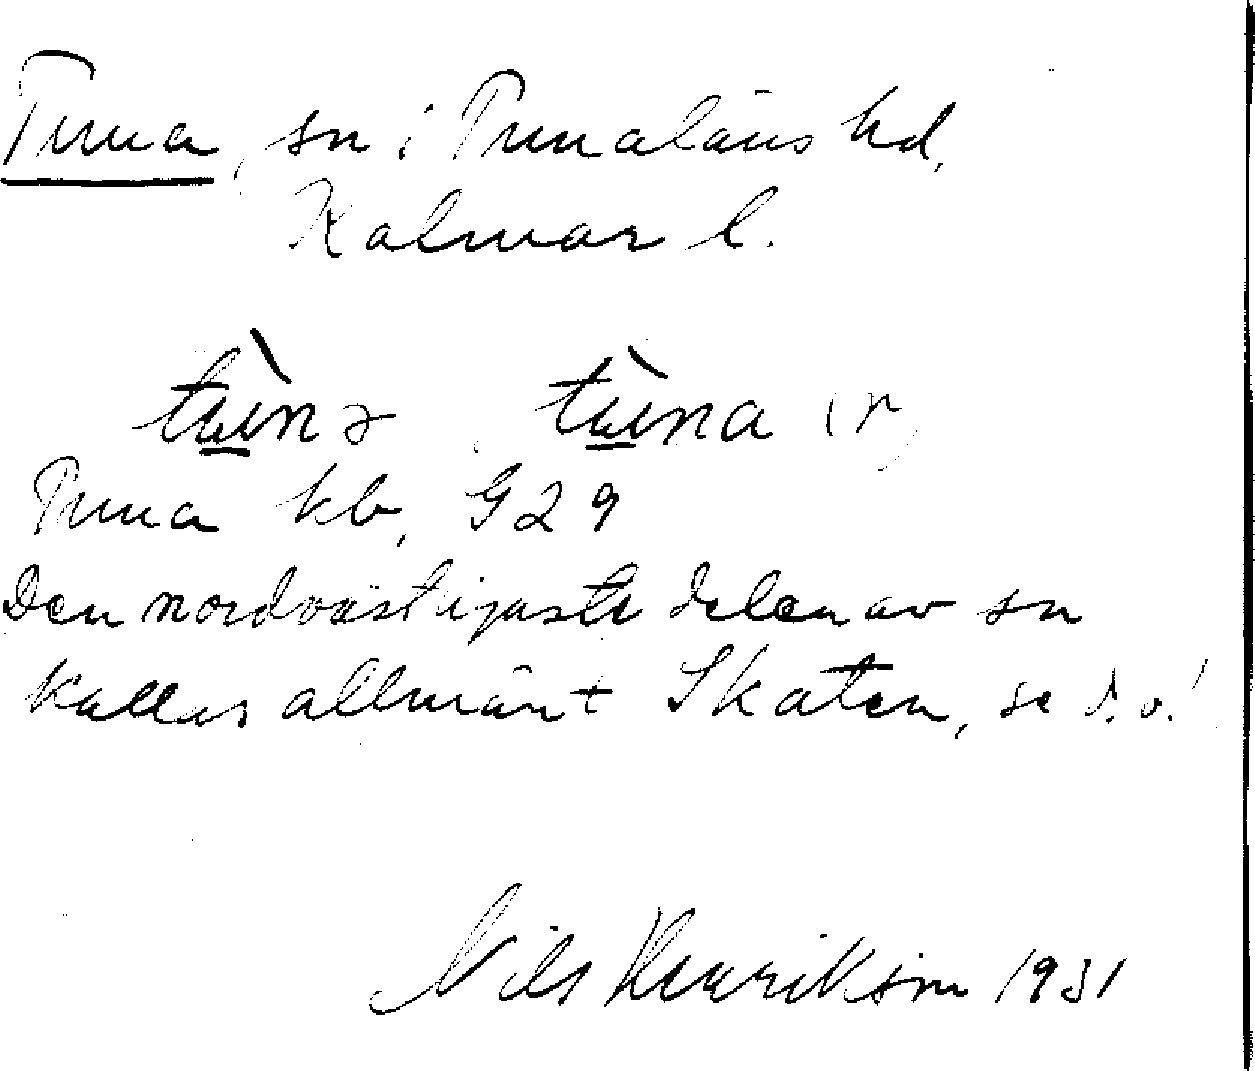 Tuna, sn i Tunaläns hd,
Kalmar l.
tùna, tùna (r)
Tuna kb, G29
Den nordvästligaste delen av sn
kallas allmänt Skaten, se d. o.!
Nils Henrikson 1931